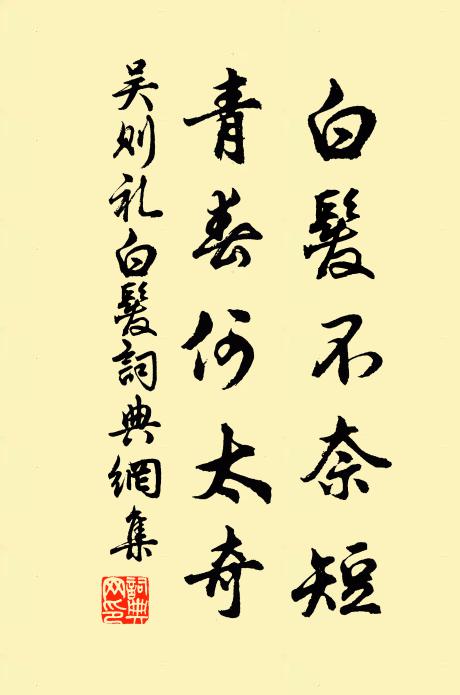 白髮不奈短
青春何太奇
吴则礼白髮詞典網集
詞典網印